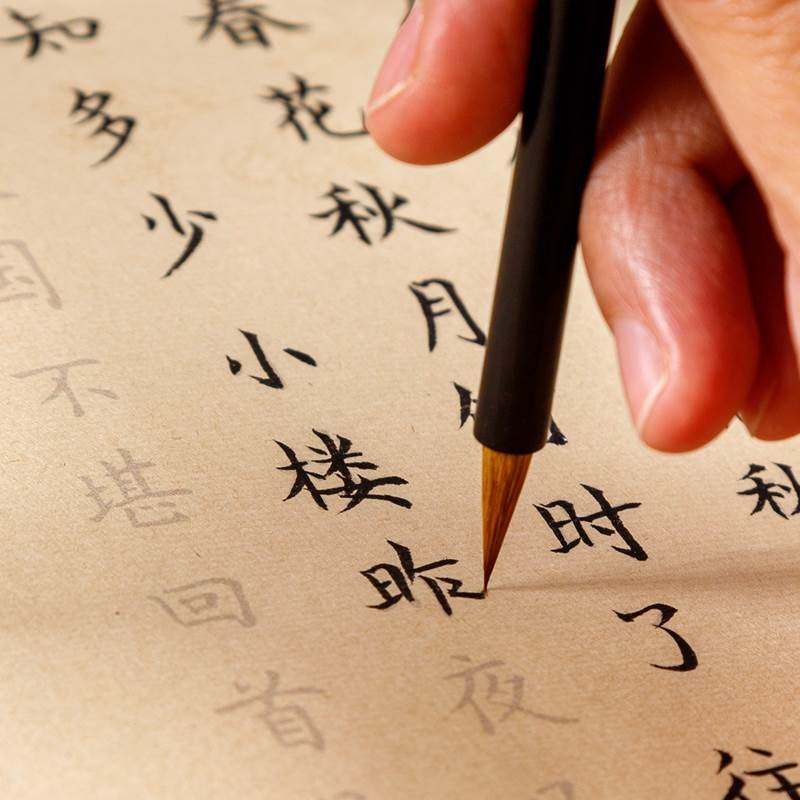 秋
春花秋月时了往
知多少小楼昨夜
国不堪回首